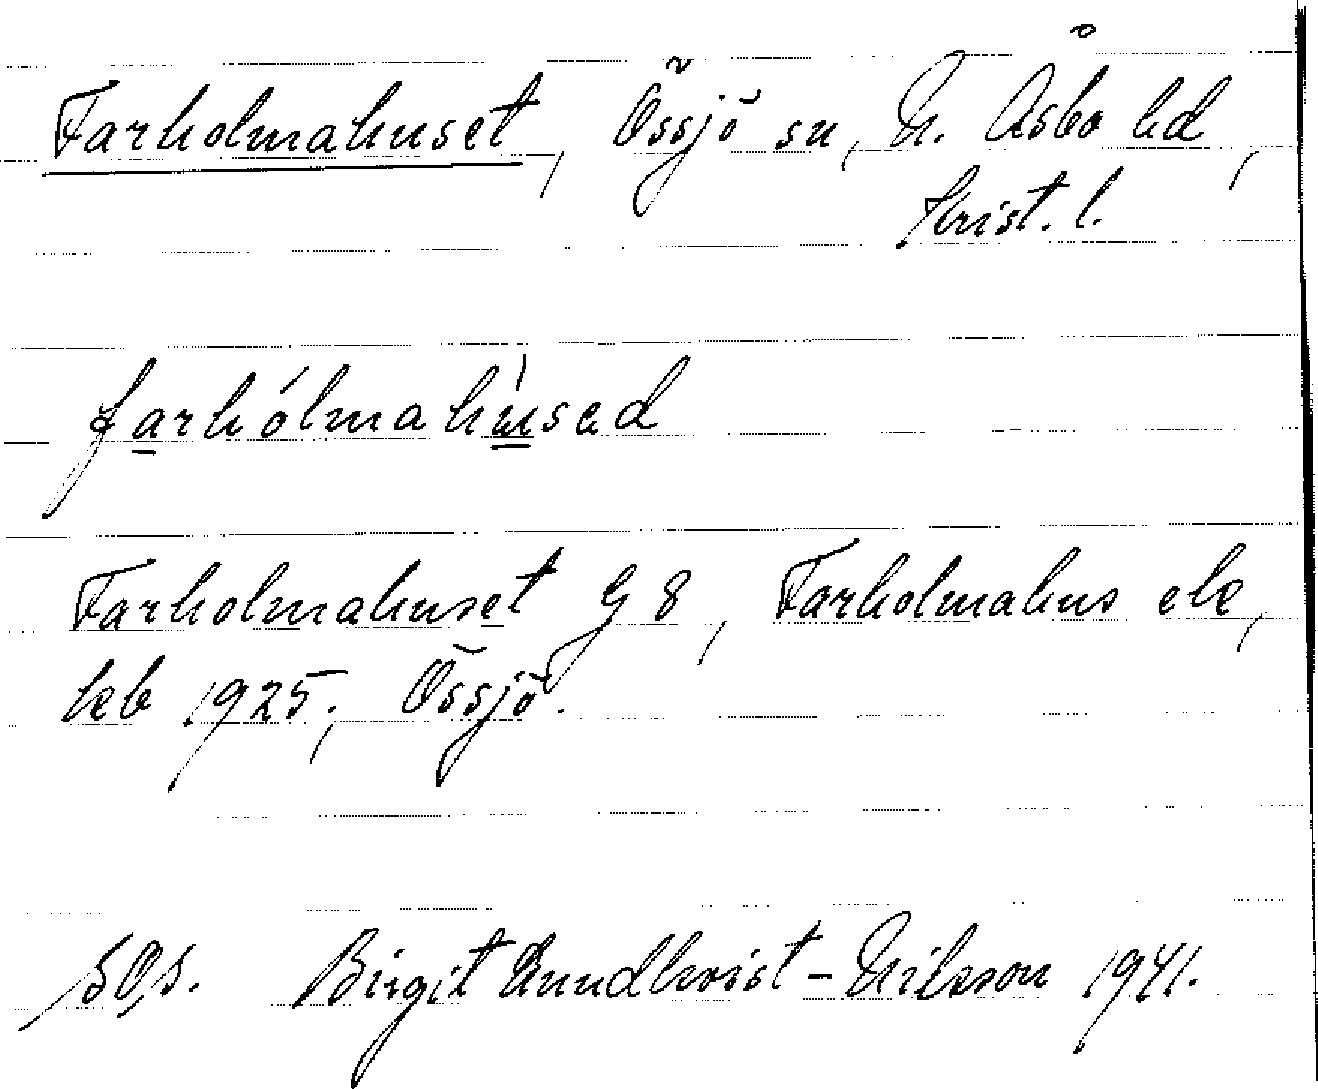 Farholmahuset, Össjö sn, N. Åsbo hd,
Krist. l.
farhólmahùsed
Farholmahuset G 8, Farholmahus ek,
kb 1925; Össjö.
SOS. Birgit Lundkvist-Nilsson 1941.